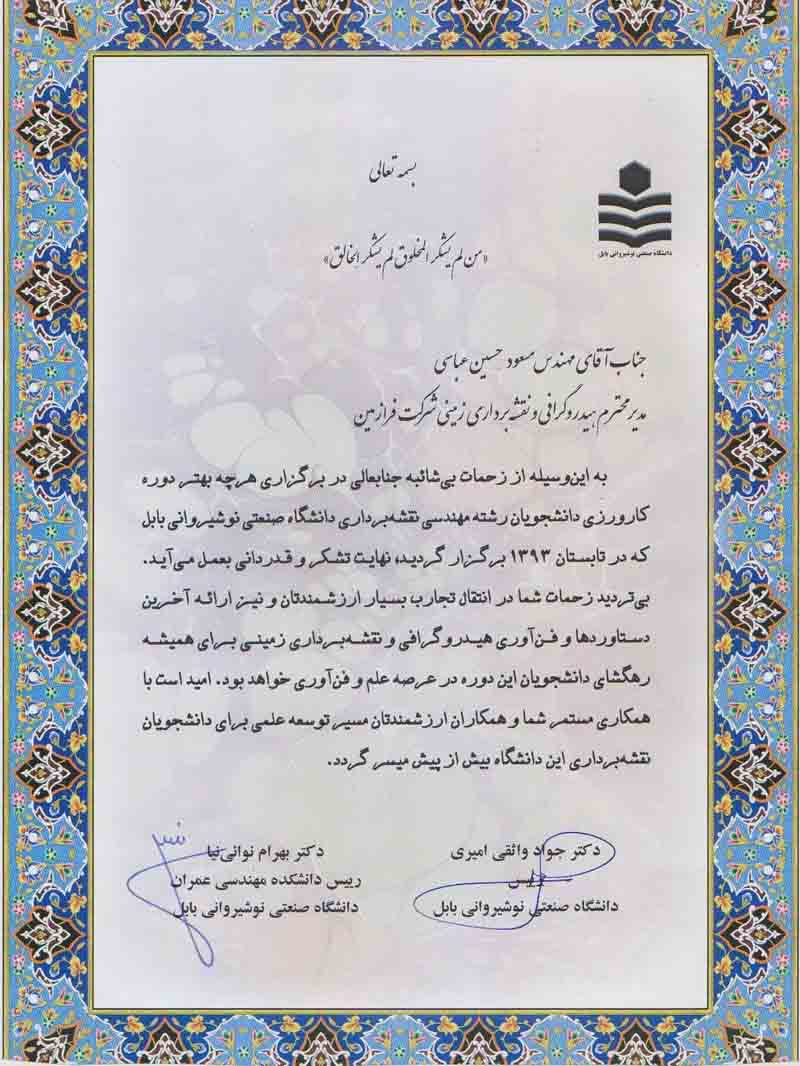 بسمه تعالی
دانشگاه صنعتی نوشیروانی بابل
«من لم یشکر المخلوق لم یشکر الخالق»
جناب آقای مهندس مسعود حسین عباسی
مدیر محترم هیدروگرافی و نقشه برداری زمینی شرکت فرازمین
به این‌وسیله از زحمات بی‌شائبه جنابعالی در برگزاری هرچه بهتر دوره
کارورزی دانشجویان رشته مهندسی نقشه‌برداری دانشگاه صنعتی نوشیروانی بابل
که در تابستان ۱۳۹۳ برگزار گردید، نهایت تشکر و قدردانی بعمل می‌آید.
بی‌تردید زحمات شما در انتقال تجارب بسیار ارزشمندتان و نیز ارائه آخرین
دستاوردها و فن‌آوری هیدروگرافی و نقشه‌برداری زمینی برای همیشه
رهگشای دانشجویان این دوره در عرصه علم و فن‌آوری خواهد بود. امید است با
همکاری مستمر شما و همکاران ارزشمندتان مسیر توسعه علمی برای دانشجویان
نقشه‌برداری این دانشگاه بیش از پیش میسر گردد.
دکتر جواد واثقی امیری
رییس
دانشگاه صنعتی نوشیروانی بابل
دکتر بهرام نوائی‌نیا
رییس دانشکده مهندسی عمران
دانشگاه صنعتی نوشیروانی بابل